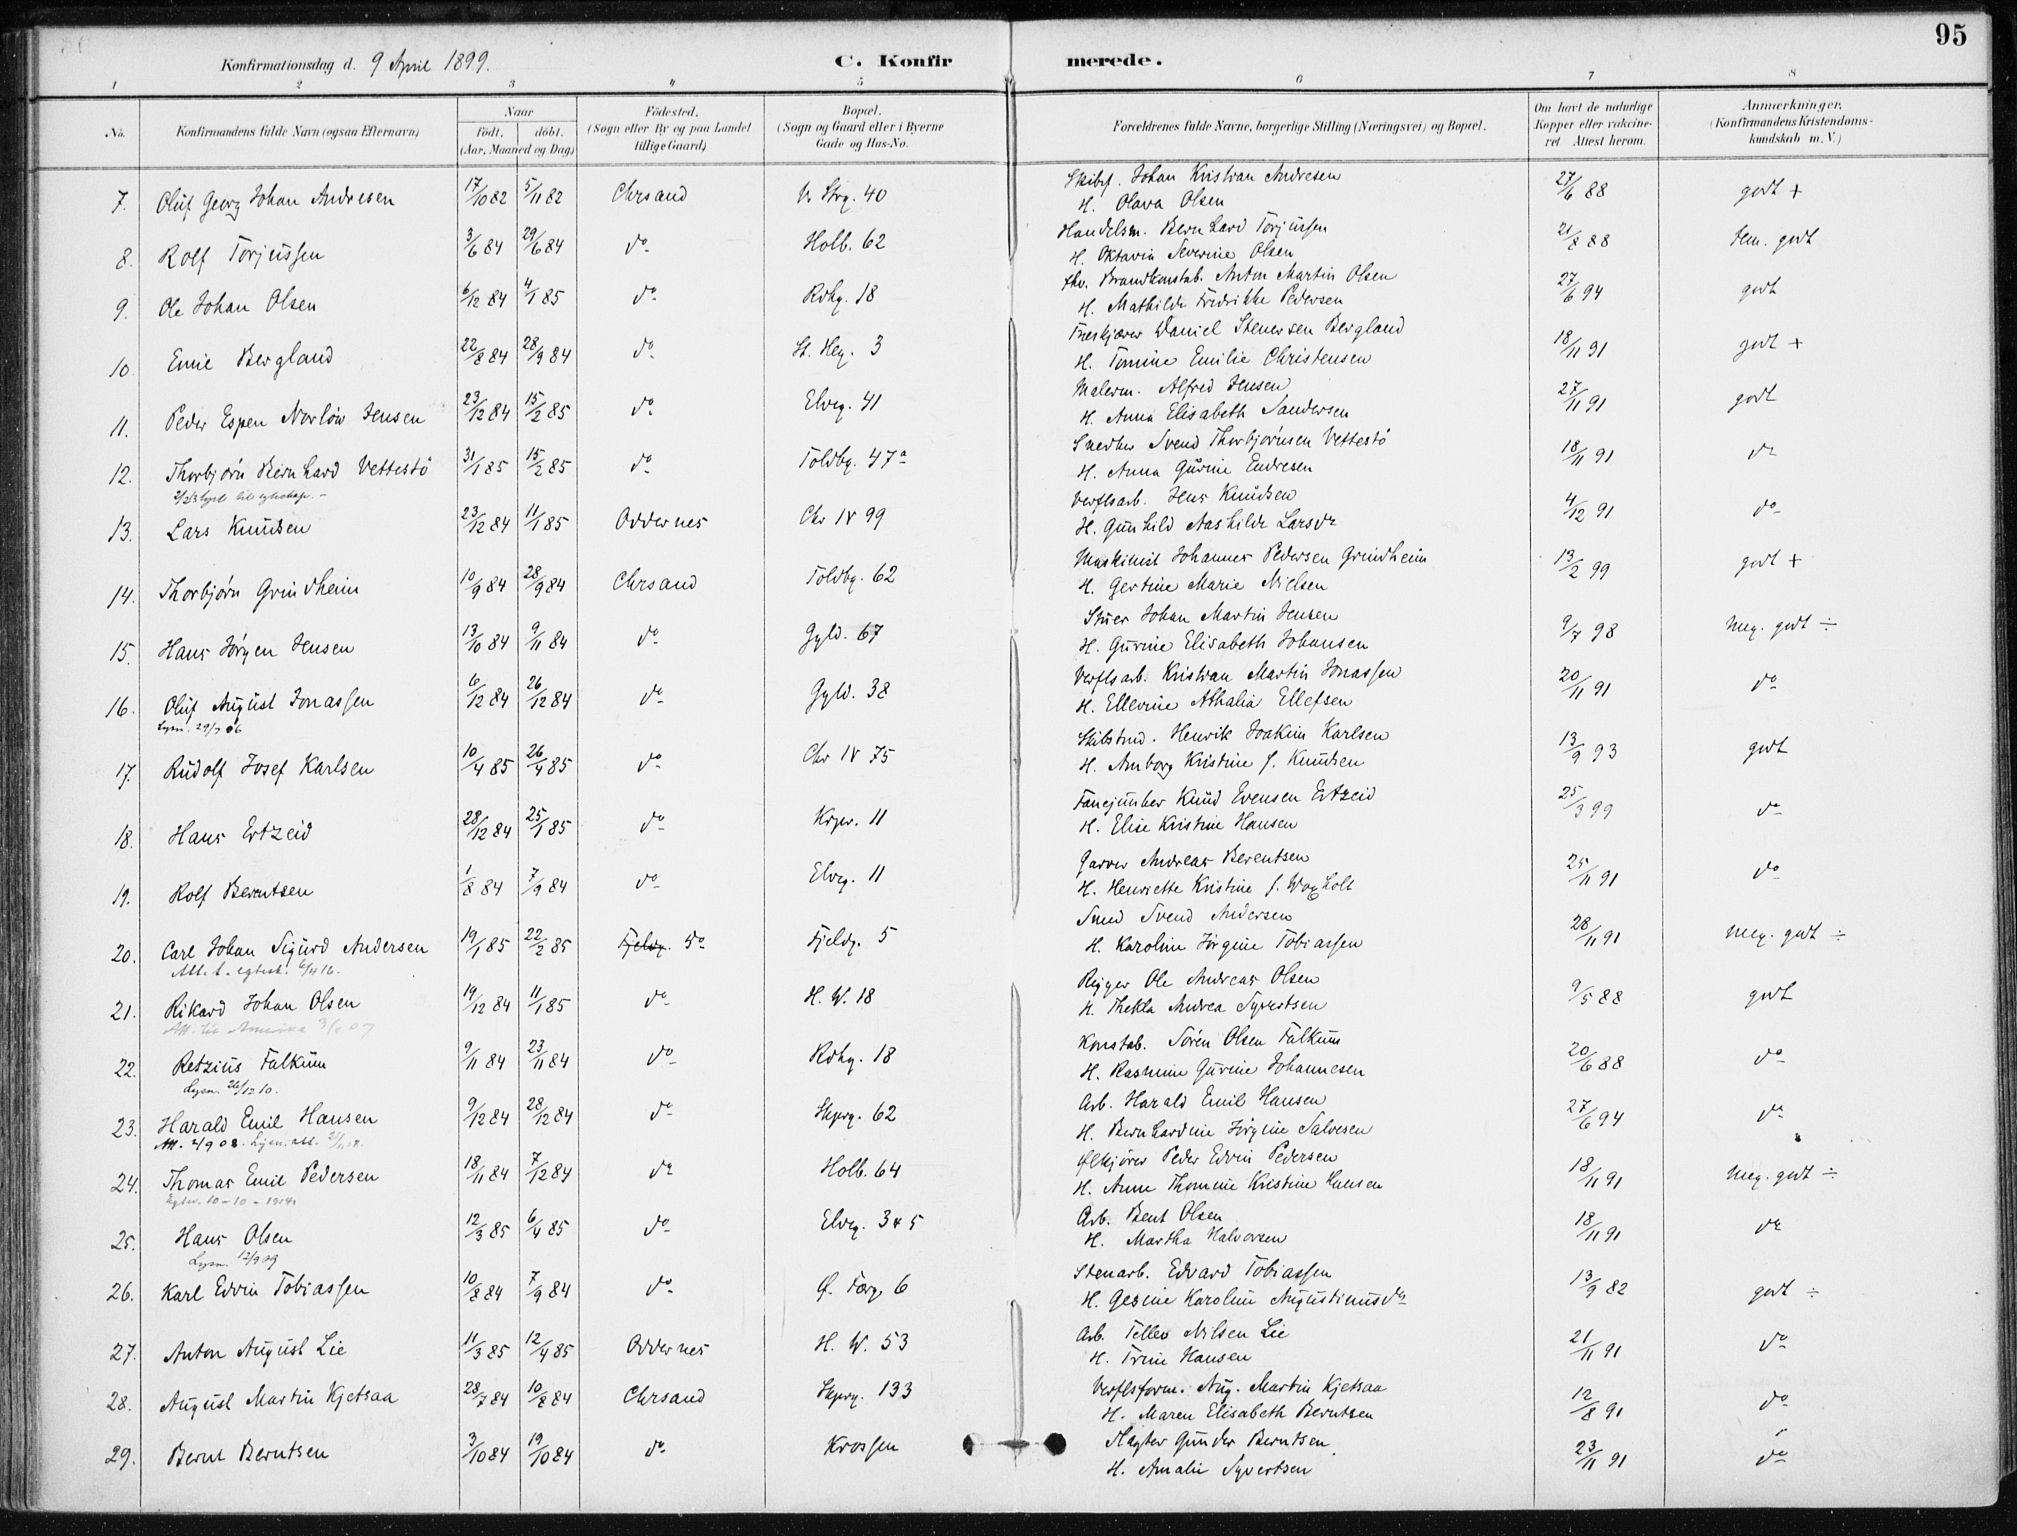 95
Konfirmationsdag d. 9 April 1899. C. Konfirmerede.
1 2 3 4 5 6 7 8
No. Konfirmandens fulde Navn (ogsaa Efternavn) Naar født. døbt. (Aar, Maaned og Dag) Fødested. (Sogn eller By og paa Landet tillige Gaard) Bopæl. (Sogn og Gaard eller i Byerne Gade og Hus-No. Forældrenes fulde Navne, borgerlige Stilling (Næringsvei) og Bopæl. Om havt de naturlige Kopper eller vaccineret Attest herom. Anmærkninger. (Konfirmandens Kristendomskundskab m. V.)
7. Oluf Georg Johan Andresen 17/10 82 5/11 82 Chrsand V. Strg. 40 Skibsf. Johan Kristian Andresen 27/6 88 godt +
H. Olava Olsen
8. Rolf Torjussen 3/6 84 29/6 84 do Holb. 62 Handelsm. Bernhard Torjussen 21/8 88 Tem. godt
H. Oktavia Severine Olsen
9. Ole Johan Olsen 6/12 84 4/1 85 do Rdhg. 18 fhv. Brandkonstab. Anton Martin Olsen 27/6 94 godt
H. Mathilde Fredrikke Pedersen
10. Emil Bergland 22/8 84 28/9 84 do St. Heg. 3 Træskjærer Daniel Stenersen Bergland 18/11 91 godt +
H. Tomine Emilie Christensen
11. Peder Espen Norløw Jensen 23/12 84 15/2 85 do Elveg. 41 Malerm. Alfred Jensen 27/11 91 godt
H. Anna Elisabeth Sandersen
12. Thorbjørn Bernhard Vettestö 31/1 85 15/2 85 do Toldbg. 47a Snedker Svend Thorbjørnsen Vettestö 18/11 91 do
H. Anna Gurine Endresen
13. Lars Knudsen 23/12 84 11/1 85 Oddernes Chr IV 99 Verftsarb. Jens Knudsen 4/12 91 do
H. Gunhild Aashilde Larsdr
14. Thorbjørn Grindheim 10/9 84 28/9 84 Chrsand Toldbg. 62 Maskinist Johannes Pedersen Grindheim 13/2 99 godt +
H. Gertine Marie Nielsen
15. Hans Jørgen Jensen 13/10 84 9/11 84 do Gyld. 67 Stuer Johan Martin Jensen 9/7 98 Meg. godt ÷
H. Gurine Elisabeth Johansen
16. Oluf August Jonassen 6/12 84 26/12 84 do Gyld. 38 Verftsarb. Kristian Martin Jonassen 20/11 91 do
Lysn. 29/7 06 H. Ellevine Athalia Ellefsen
17. Rudolf Josef Karlsen 10/4 85 26/4 85 do Chr IV 75 Skibstmd. Henrik Joakim Karlsen 13/9 93 godt
H. Amborg Kristine f. Knudsen
18. Hans Ertzeid 28/12 84 25/1 85 do Krpr. 11 Fanejunker Knud Evensen Ertzeid 25/3 99 do
H. Elise Kristine Hansen
19. Rolf Berentsen 1/8 84 7/9 84 do Elveg. 11 Garver Andreas Berentsen 25/11 91 do
H. Henriette Kristine f. Waxholt
20. Carl Johan Sigurd Andersen 19/1 85 22/2 85 Fjeldg. do Fjeldg. 5 Smed Svend Andersen 28/11 91 Meg. godt ÷
Att. t. egtesk. 6/4 16. H. Karoline Jørgine Tobiassen
21. Rikard Johan Olsen 19/12 84 11/1 85 do H. W. 18 Rejger Ole Andreas Olsen 9/5 88 godt
H. Thekla Andrea Syvertsen
22. Retzius Falkum 9/11 84 23/11 84 do Rdhg. 18 Konstab. Søren Olsen Falkum 20/6 88 do
Lysn. 26/12 10. H. Rasmine Gurine Johannesen
23. Harald Emil Hansen 9/12 84 28/12 84 do Skprg. 62 Arb. Harald Emil Hansen 27/6 94 do
Att. 2/9 02. H. Bernhardine Jørgine Salvesen
24. Thomas Emil Pedersen 18/11 84 7/12 84 do Holb. 64 Ølkjører Peder Edvin Pedersen 18/11 91 Meg. godt ÷
10-10-1914 H. Anne Thomine Kristine Hansen
25. Hans Olsen 12/3 85 6/4 85 do Elveg. 345 Arb. Bent Olsen 18/11 91 do
Lysn. 12/9 09 H. Martha Halvorsen
26. Karl Edvin Tobiassen 10/8 84 7/9 84 do Ø. Færg. 6 Stenarb. Edvard Tobiassen 13/9 82 godt ÷
H. Gesine Karoline Augustinusdr
27. Anton August Lie 11/3 85 12/4 85 Oddernes H. W. 53 Arb. Tellev Nilsen Lie 21/11 91 do
H. Trine Hansen
28. August Martin Kjetsaa 28/7 84 10/8 84 Chrsand Skprg. 133 Verftsform. Aug. Martin Kjetsaa 12/8 91 do
H. Maren Elisabeth Berntsen
29. Bernt Berntsen 3/10 84 19/10 84 do Krossen Slagter Gunder Berntsen 23/11 91 do
H. Amalie Syvertsen